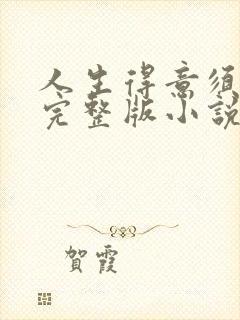 人生得意须
完整版小說
賀霞